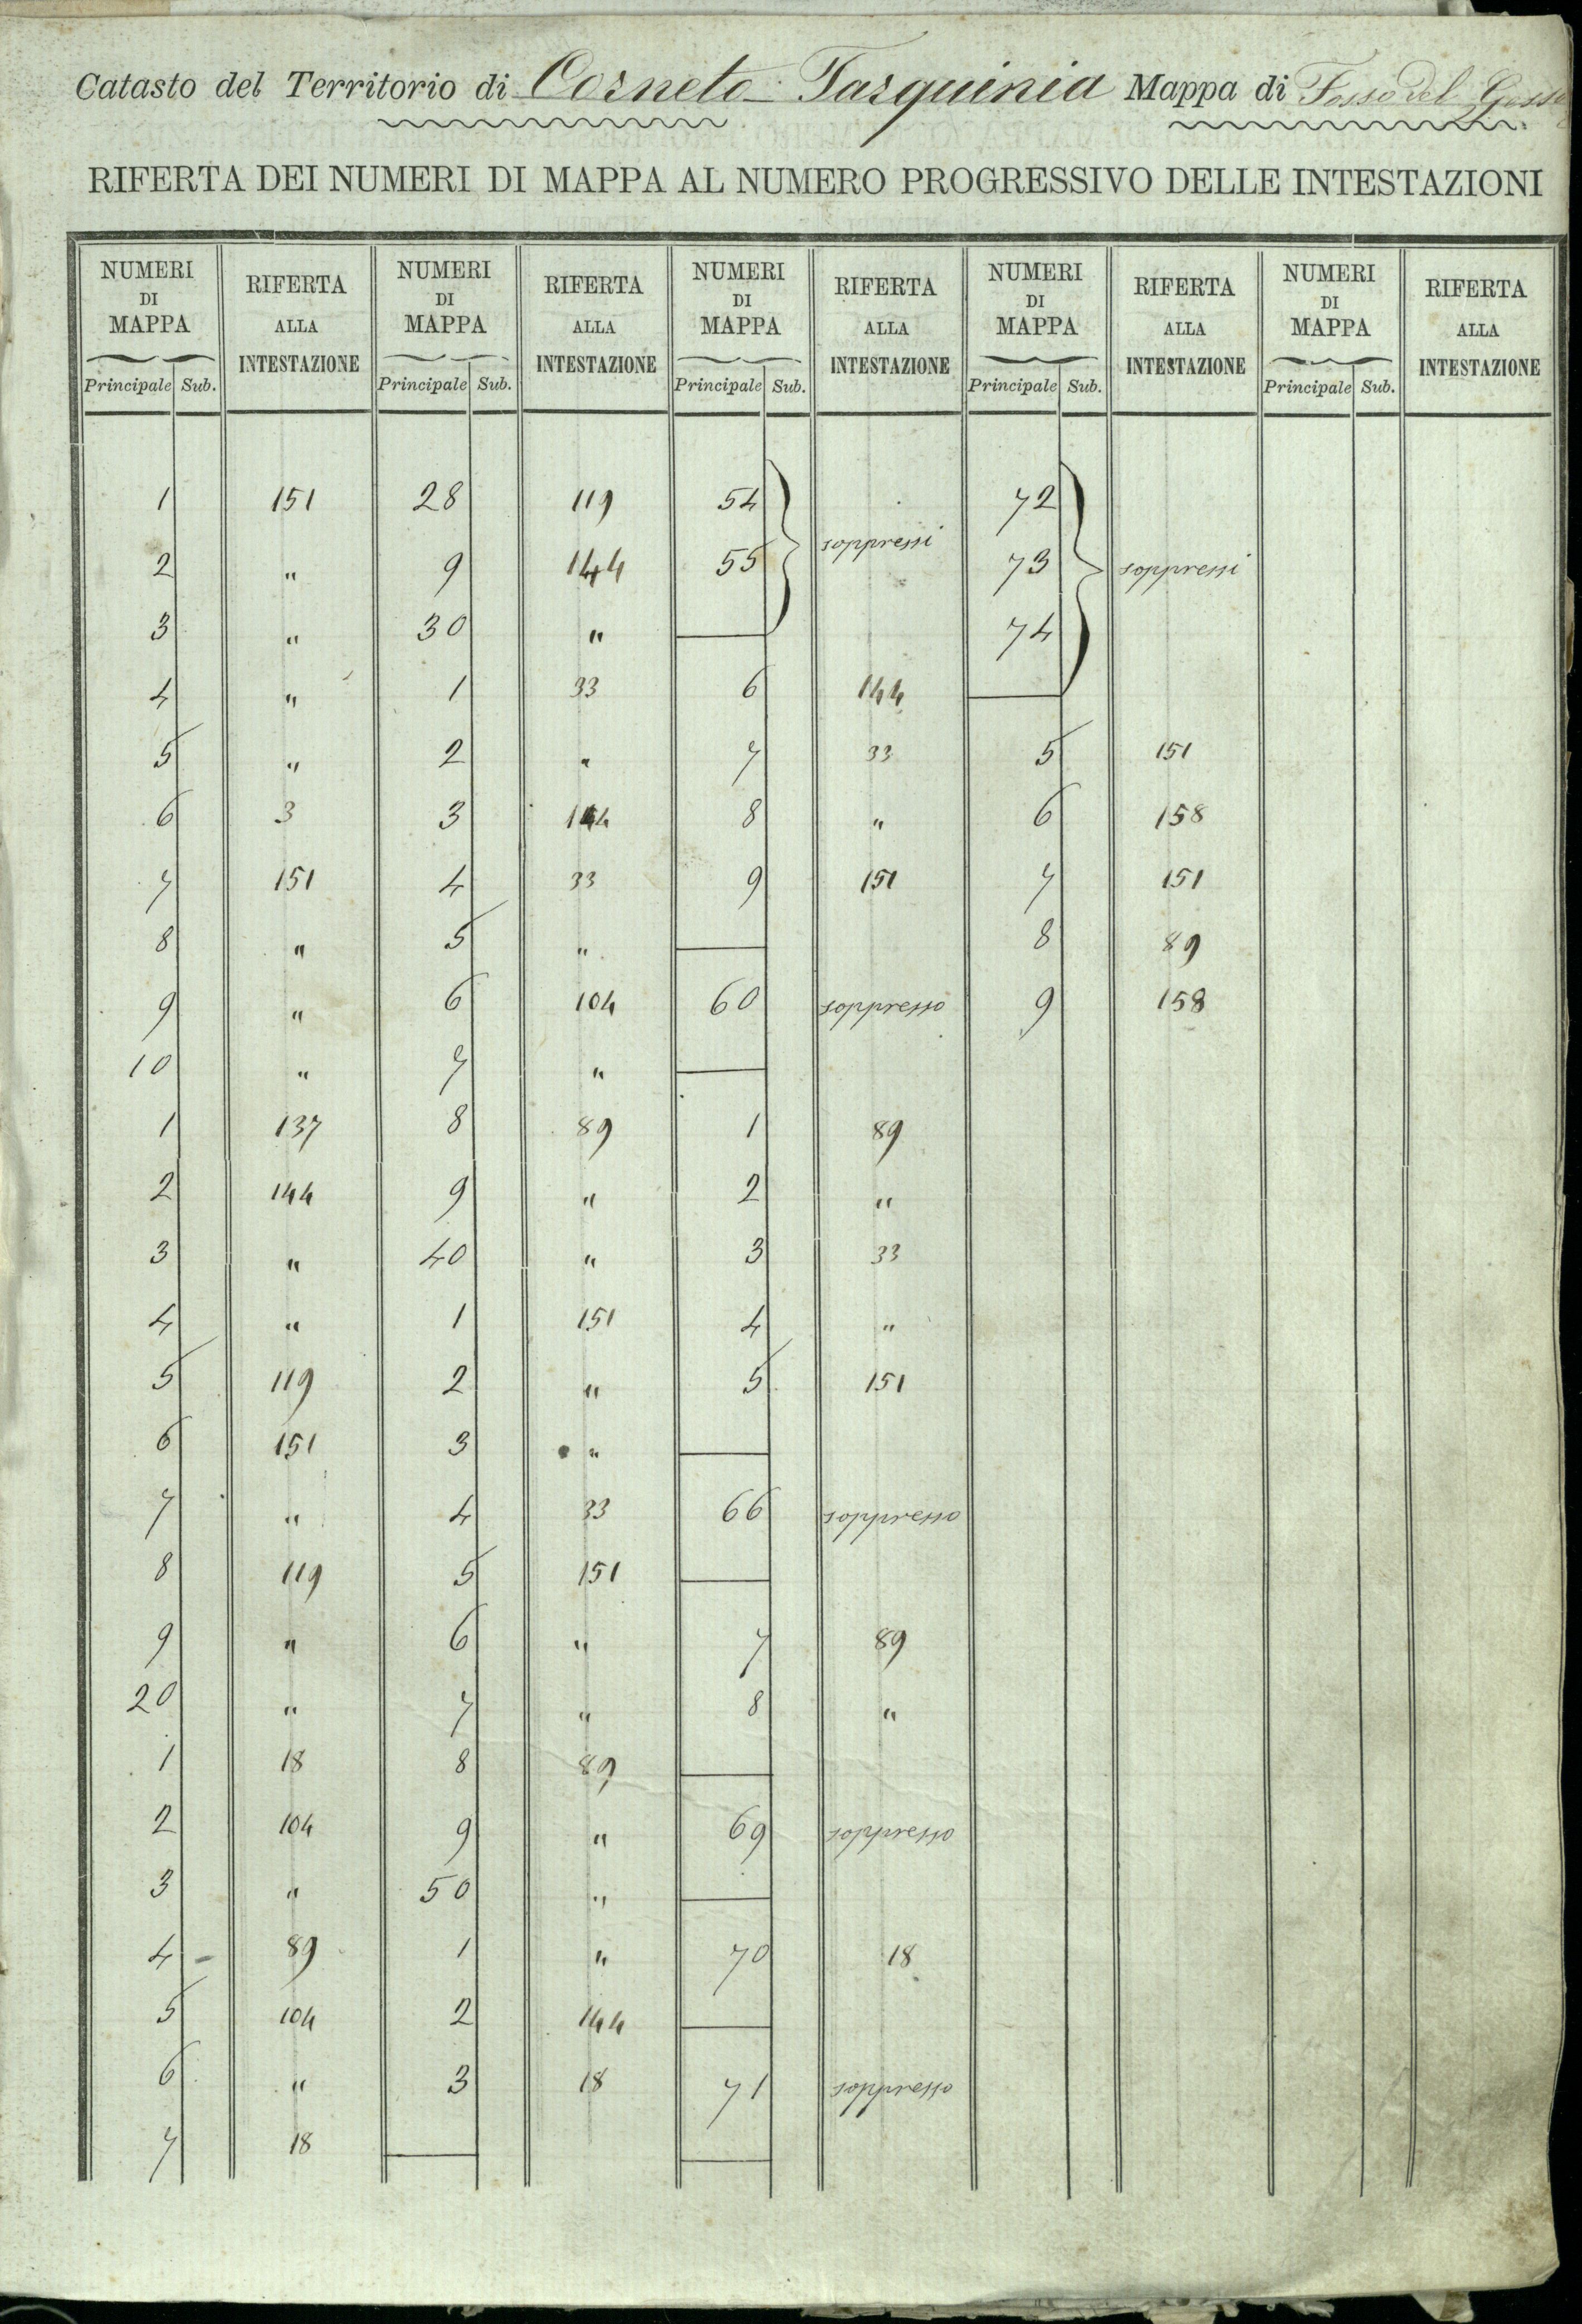 Catasto del Territorio di Corneto-Tarquinia Mappa di Fosso del
RIFERTA DEI NUMERI DI MAPPA AL NUMERO PROGRESSIVO DELLE INTESTAZIONI
NUMERI RIFERTA NUMERI RIFERTA NUMERI RIFERTA NUMERI RIFERTA NUMERI RIFERTA
DI ALLA DI ALLA DI ALLA DI ALLA DI ALLA
MAPPA INTESTAZIONE MAPPA INTESTAZIONE MAPPA INTESTAZIONE MAPPA INTESTAZIONE MAPPA INTESTAZIONE
Principale Sub. Principale Sub. Principale Sub. Principale Sub. Principale Sub.
1 151 28 119 54 soppressi 72 soppressi
2 " 9 144 55 73
3 " 30 " 74
4 " 1 33 6 144
5 " 2 " 7 33 5 151
6 3 3 144 8 " 6 158
7 151 4 33 9 151 7 151
8 " 5 " 8 89
9 " 6 104 60 soppresso 9 158
10 " 7 "
1 137 8 89 1 89
2 144 9 " 2 "
3 " 40 " 3 33
4 " 1 151 4 "
5 119 2 " 5 151
6 151 3 "
7 " 4 33 66 soppresso
8 119 5 151
9 " 6 " 7 89
20 " 7 " 8 "
1 18 8 89
2 104 9 " 69 soppresso
3 " 50 "
4 89 1 " 70 18
5 104 2 144
6 " 3 18 71 soppresso
7 18